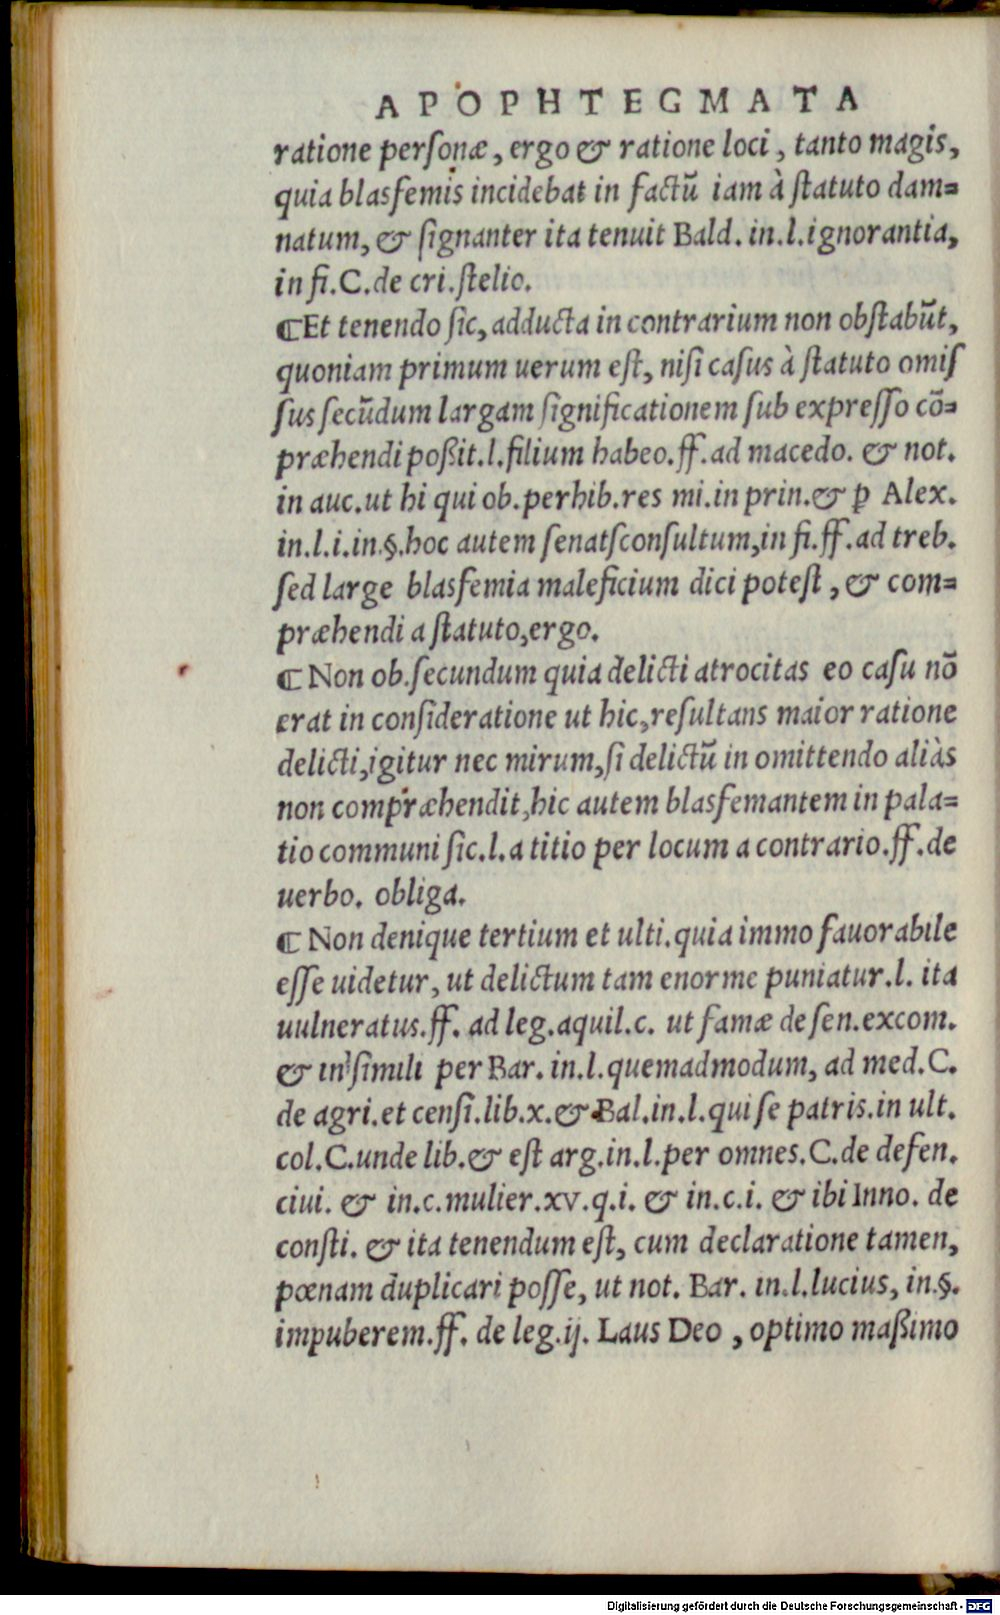 APOPHTEGMATA
ratione perſonæ, ergo & ratione loci, tanto magis,
quia blasfemis incidebat in factū iam à ſtatuto dam=
natum, & ſignanter ita tenuit Bald. in.l.ignorantia,
in fi.C.de cri.ſtelio.
¶Et tenendo ſic, adducta in contrarium non obſtabūt,
quoniam primum uerum eſt, niſi caſus à ſtatuto omiſ
ſus ſecūdum largam ſignificationem ſub expreſſo cō=
præhendi poßit.l.filium habeo.ff.ad macedo. & not.
in auc.ut hi qui ob.perhib.res mi.in prin.& ꝑ Alex.
in.l.i.in.§.hoc autem ſenatſconſultum,in fi.ff.ad treb.
ſed large blasfemia maleficium dici poteſt, & com=
præhendi a ſtatuto,ergo.
¶ Non ob.ſecundum quia delicti atrocitas eo caſu nō
erat in conſideratione ut hic,reſultans maior ratione
delicti,igitur nec mirum,ſi delictū in omittendo aliàs
non compræhendit,hic autem blasfemantem in pala=
tio communi ſic.l.a titio per locum a contrario.ff.de
uerbo. obliga.
¶ Non denique tertium et ulti.quia immo fauorabile
eſſe uidetur, ut delictum tam enorme puniatur.l. ita
uulneratus.ff. ad leg.aquil.c. ut famæ de ſen.excom.
& in ſimili per Bar. in.l.quemadmodum, ad med.C.
de agri.et cenſi.lib.x.& Bal.in.l.qui ſe patris.in ult.
col.C.unde lib.& eſt arg.in.l.per omnes.C.de defen.
ciui. & in.c.mulier.xv.q.i. & in.c.i. & ibi Inno. de
conſti. & ita tenendum eſt, cum declaratione tamen,
pœnam duplicari poſſe, ut not. Bar. in.l.lucius, in.§.
impuberem.ff. de leg.ij. Laus Deo, optimo maßimo
Digitalisierung gefördert durch die Deutsche Forschungsgemeinschaft - DFG